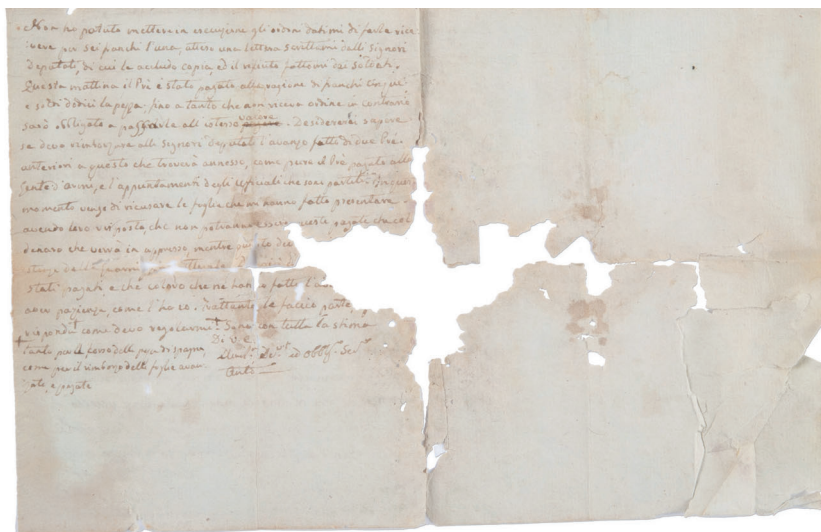 Non ho potuto mettere in esecuzione gli ordini datimi di farle rice
vere per sei panchi l'una, atteso una lettera scrittami dalli Signori
Deputati, di cui le accludo copia, ed il rifiuto fattomi dai Soldati.
Questa mattina il Prè è stato pagato alla ragione di panchi cinque
e soldi dodici la pezza; fino a tanto che non riceva ordine in contrario
sarò obbligato a passarle all'istesso valore. Desidererei sapere
se deva rimborsare alli Signori Deputati l'avanzo fatto di due Prè
anteriori a questo che troverà annesso, come pure il Prè pagato alla
Gente d'armi, e l'appuntamenti degli ufficiali che sono partiti. In questo
momento vengo di ricusare le foglie che mi hanno fatto presentare.
avendo loro risposto, che non potranno essere queste pagate che col
denaro che verrà in appresso, mentre
stati pagati e che coloro che ne hanno fatto l'
aver pazienza, come l'ho io. Frattanto le faccio parte
risponda come devo regolarmi. + Sono con tutta la stima
Di V. S.
+
tanto per il corso delle pezze di Spagna,
come per il rimborso delle foglie avan
zate, e pagate